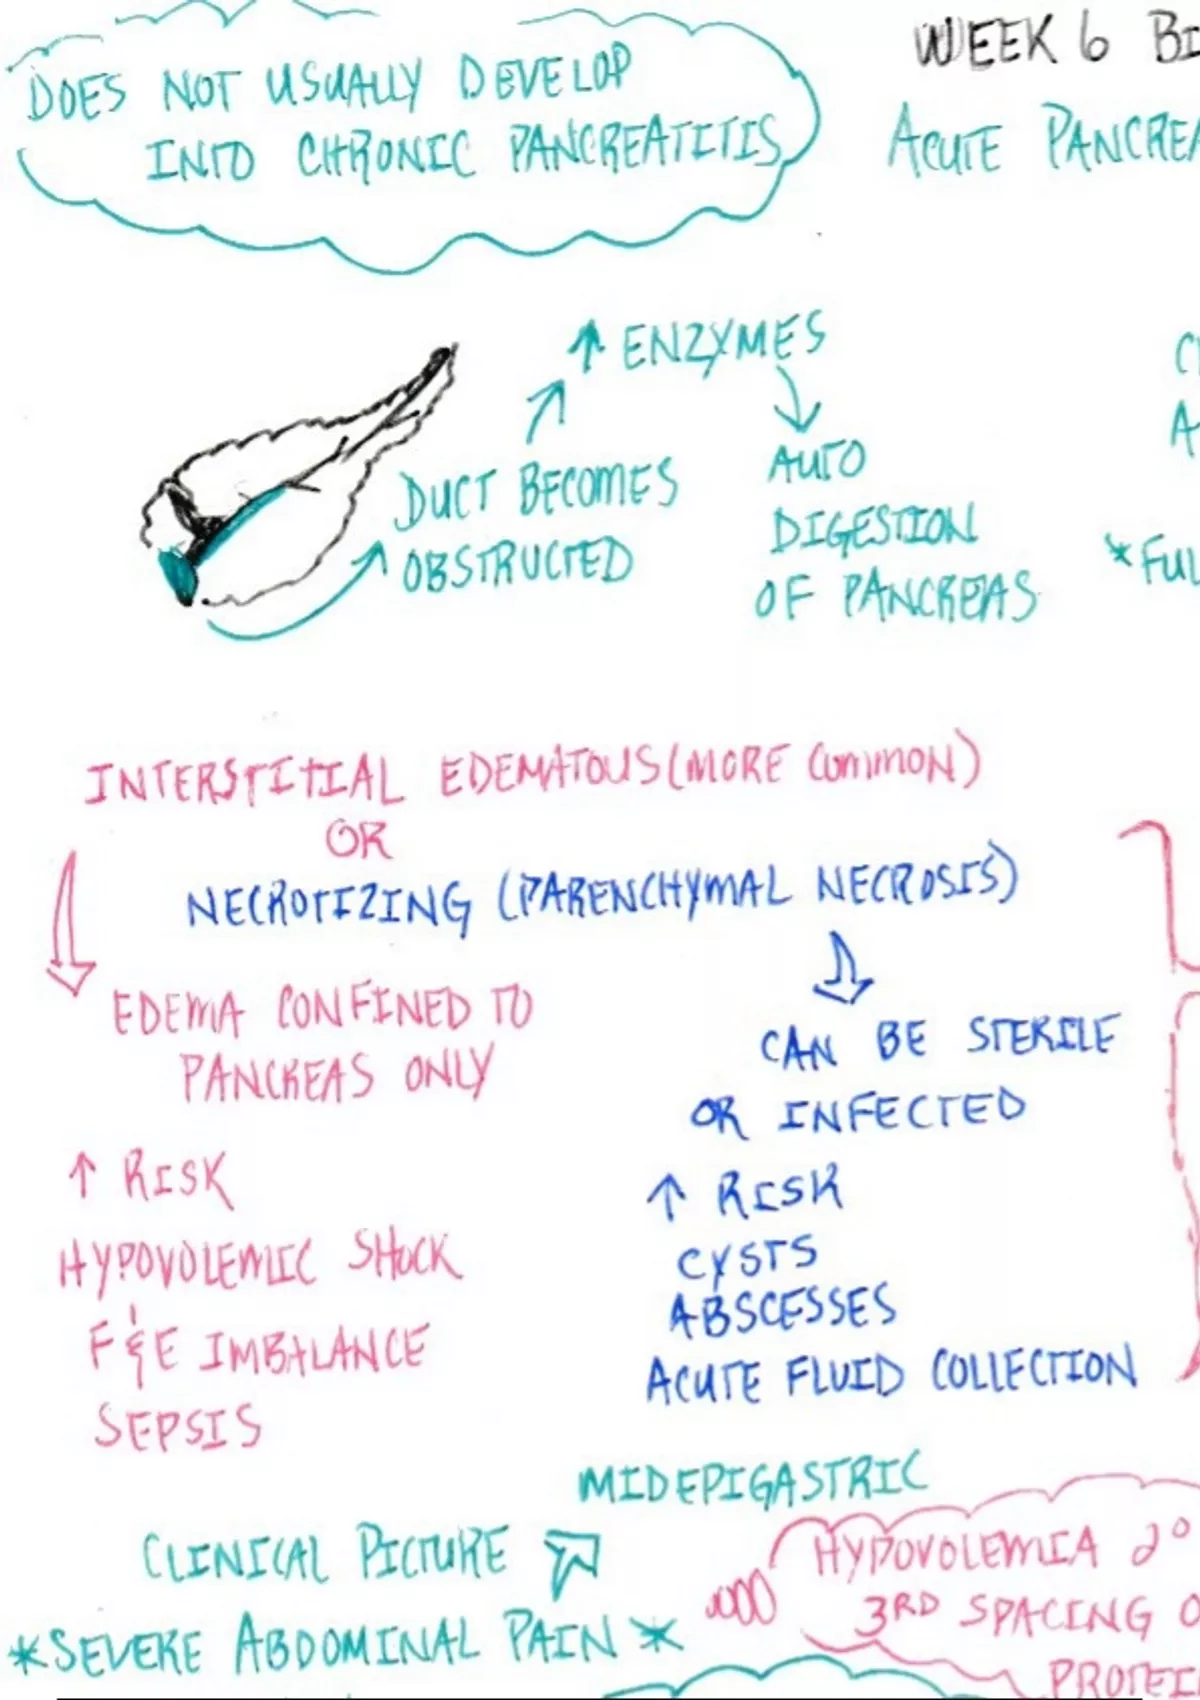 DOES NOT USUALLY DEVELOP
INTO CHRONIC PANCREATITIS
WEEK 6 BI
ACUTE PANCREA
↑ ENZYMES
AUTO
DIGESTION
OF PANCREAS
DUCT BECOMES
OBSTRUCTED
*FUL
INTERSTITIAL EDEMATOUS (MORE COMMON)
OR
NECROTIZING (PARENCHYMAL NECROSIS)
EDEMA CONFINED TO
PANCREAS ONLY
↑ RISK
HYPOVOLEMIC SHOCK
F & E IMBALANCE
SEPSIS
CAN BE STERILE
OR INFECTED
↑ RISK
CYSTS
ABSCESSES
ACUTE FLUID COLLECTION
MIDEPIGASTRIC
CLINICAL PICTURE
*SEVERE ABDOMINAL PAIN*
HYPOVOLEMIA 2°
3RD SPACING O
PROTEI